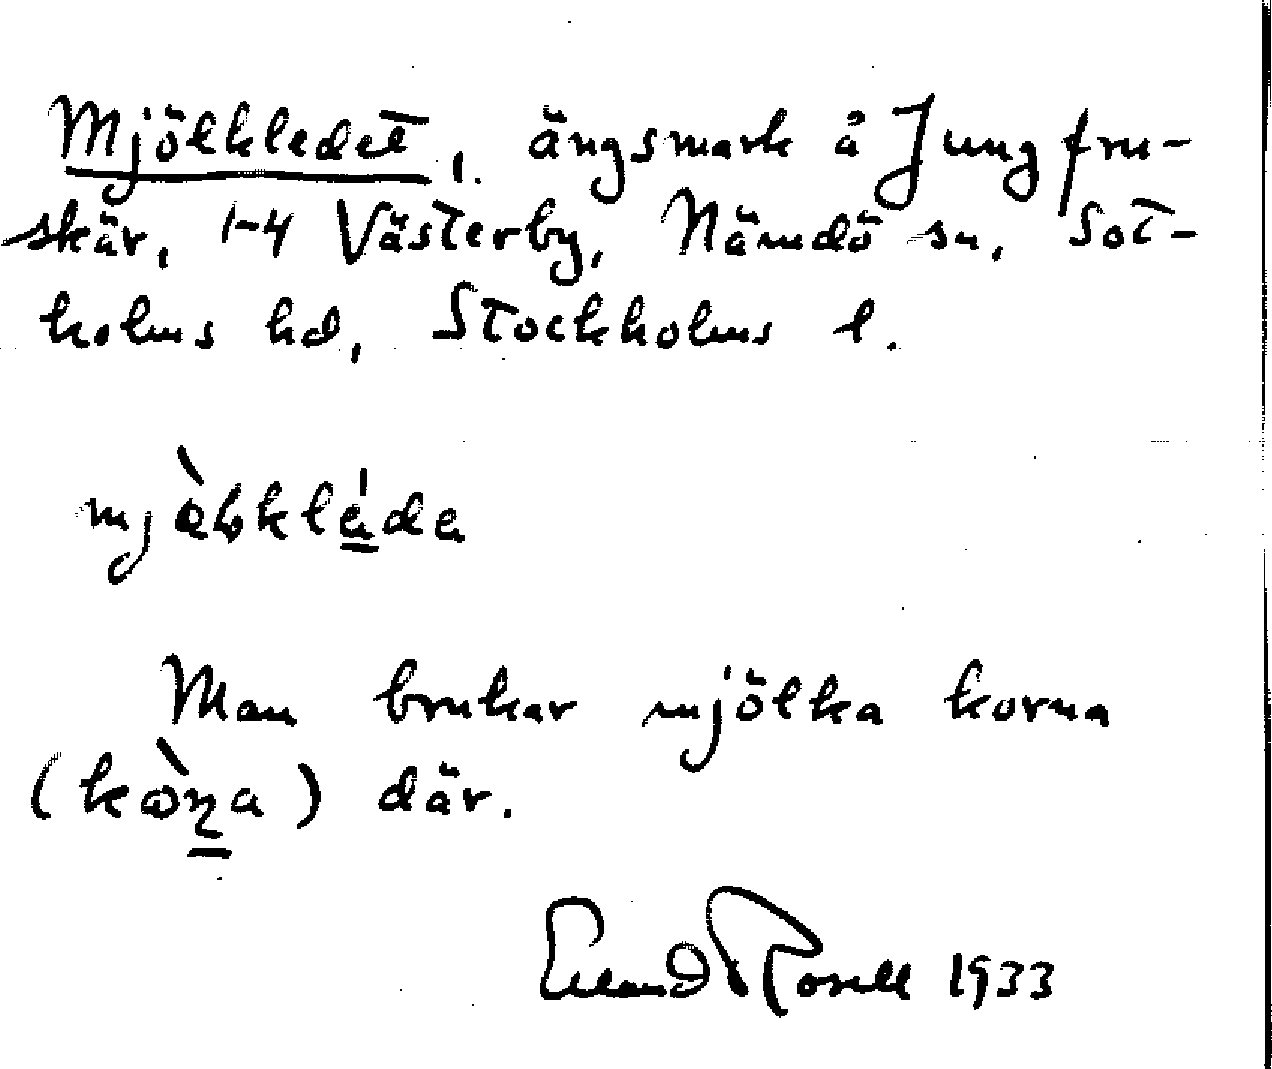 Mjölkledet, ängsmark å Jungfru-
skär, 1-4 Västerby, Nämdö sn, Sot-
holms hd, Stockholms l.
Man brukar mjölka korna
( ) där.
Erland Rosell 1933